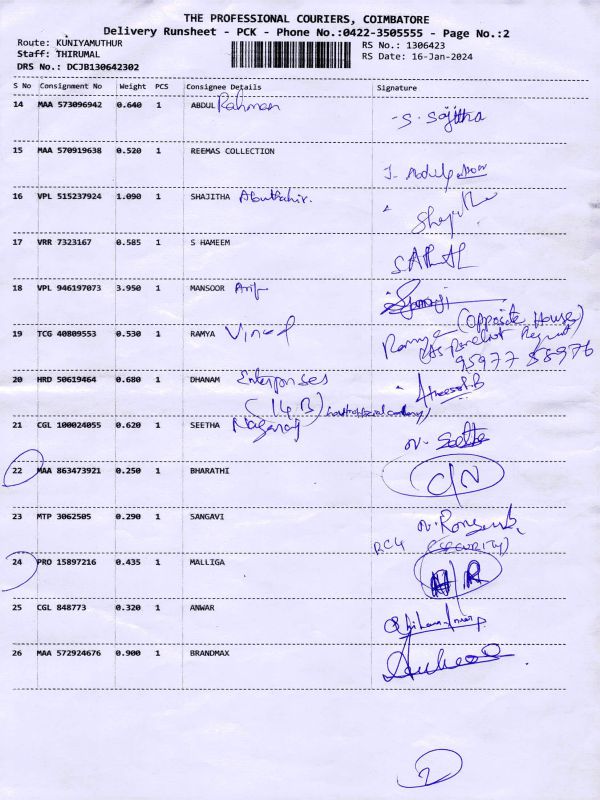 THE PROFESSIONAL COURIERS, COIMBATORE
Delivery Runsheet - PCK - Phone No.:0422-3505555 - Page No.:2
Route: KUNIYAMUTHUR
Staff: THIRUMAL
DRS No.: DCJB130642302
RS No.: 1306423
RS Date: 16-Jan-2024
S No Consignment No Weight PCS Consignee Details Signature
14 MAA 573096942 0.640 1 ABDUL Rahman S. Sajitha
15 MAA 570919638 0.520 1 REEMAS COLLECTION
16 VPL 515237924 1.090 1 SHAJITHA Abuthahir.
17 VRR 7323167 0.585 1 S HAMEEM
18 VPL 946197073 3.950 1 MANSOOR Arif
19 TCG 40809553 0.530 1 RAMYA Vinod Ramya (Opposite House)
(As Parcel
95977 58976
20 HRD 50619464 0.680 1 DHANAM Enterprises
(14 B)
21 CGL 100024055 0.620 1 SEETHA Nagaraj N. Seetha
22 MAA 863473921 0.250 1 BHARATHI C/N
23 MTP 3062505 0.290 1 SANGAVI
(SECURITY)
24 PRO 15897216 0.435 1 MALLIGA
25 CGL 848773 0.320 1 ANWAR
26 MAA 572924676 0.900 1 BRANDMAX
2